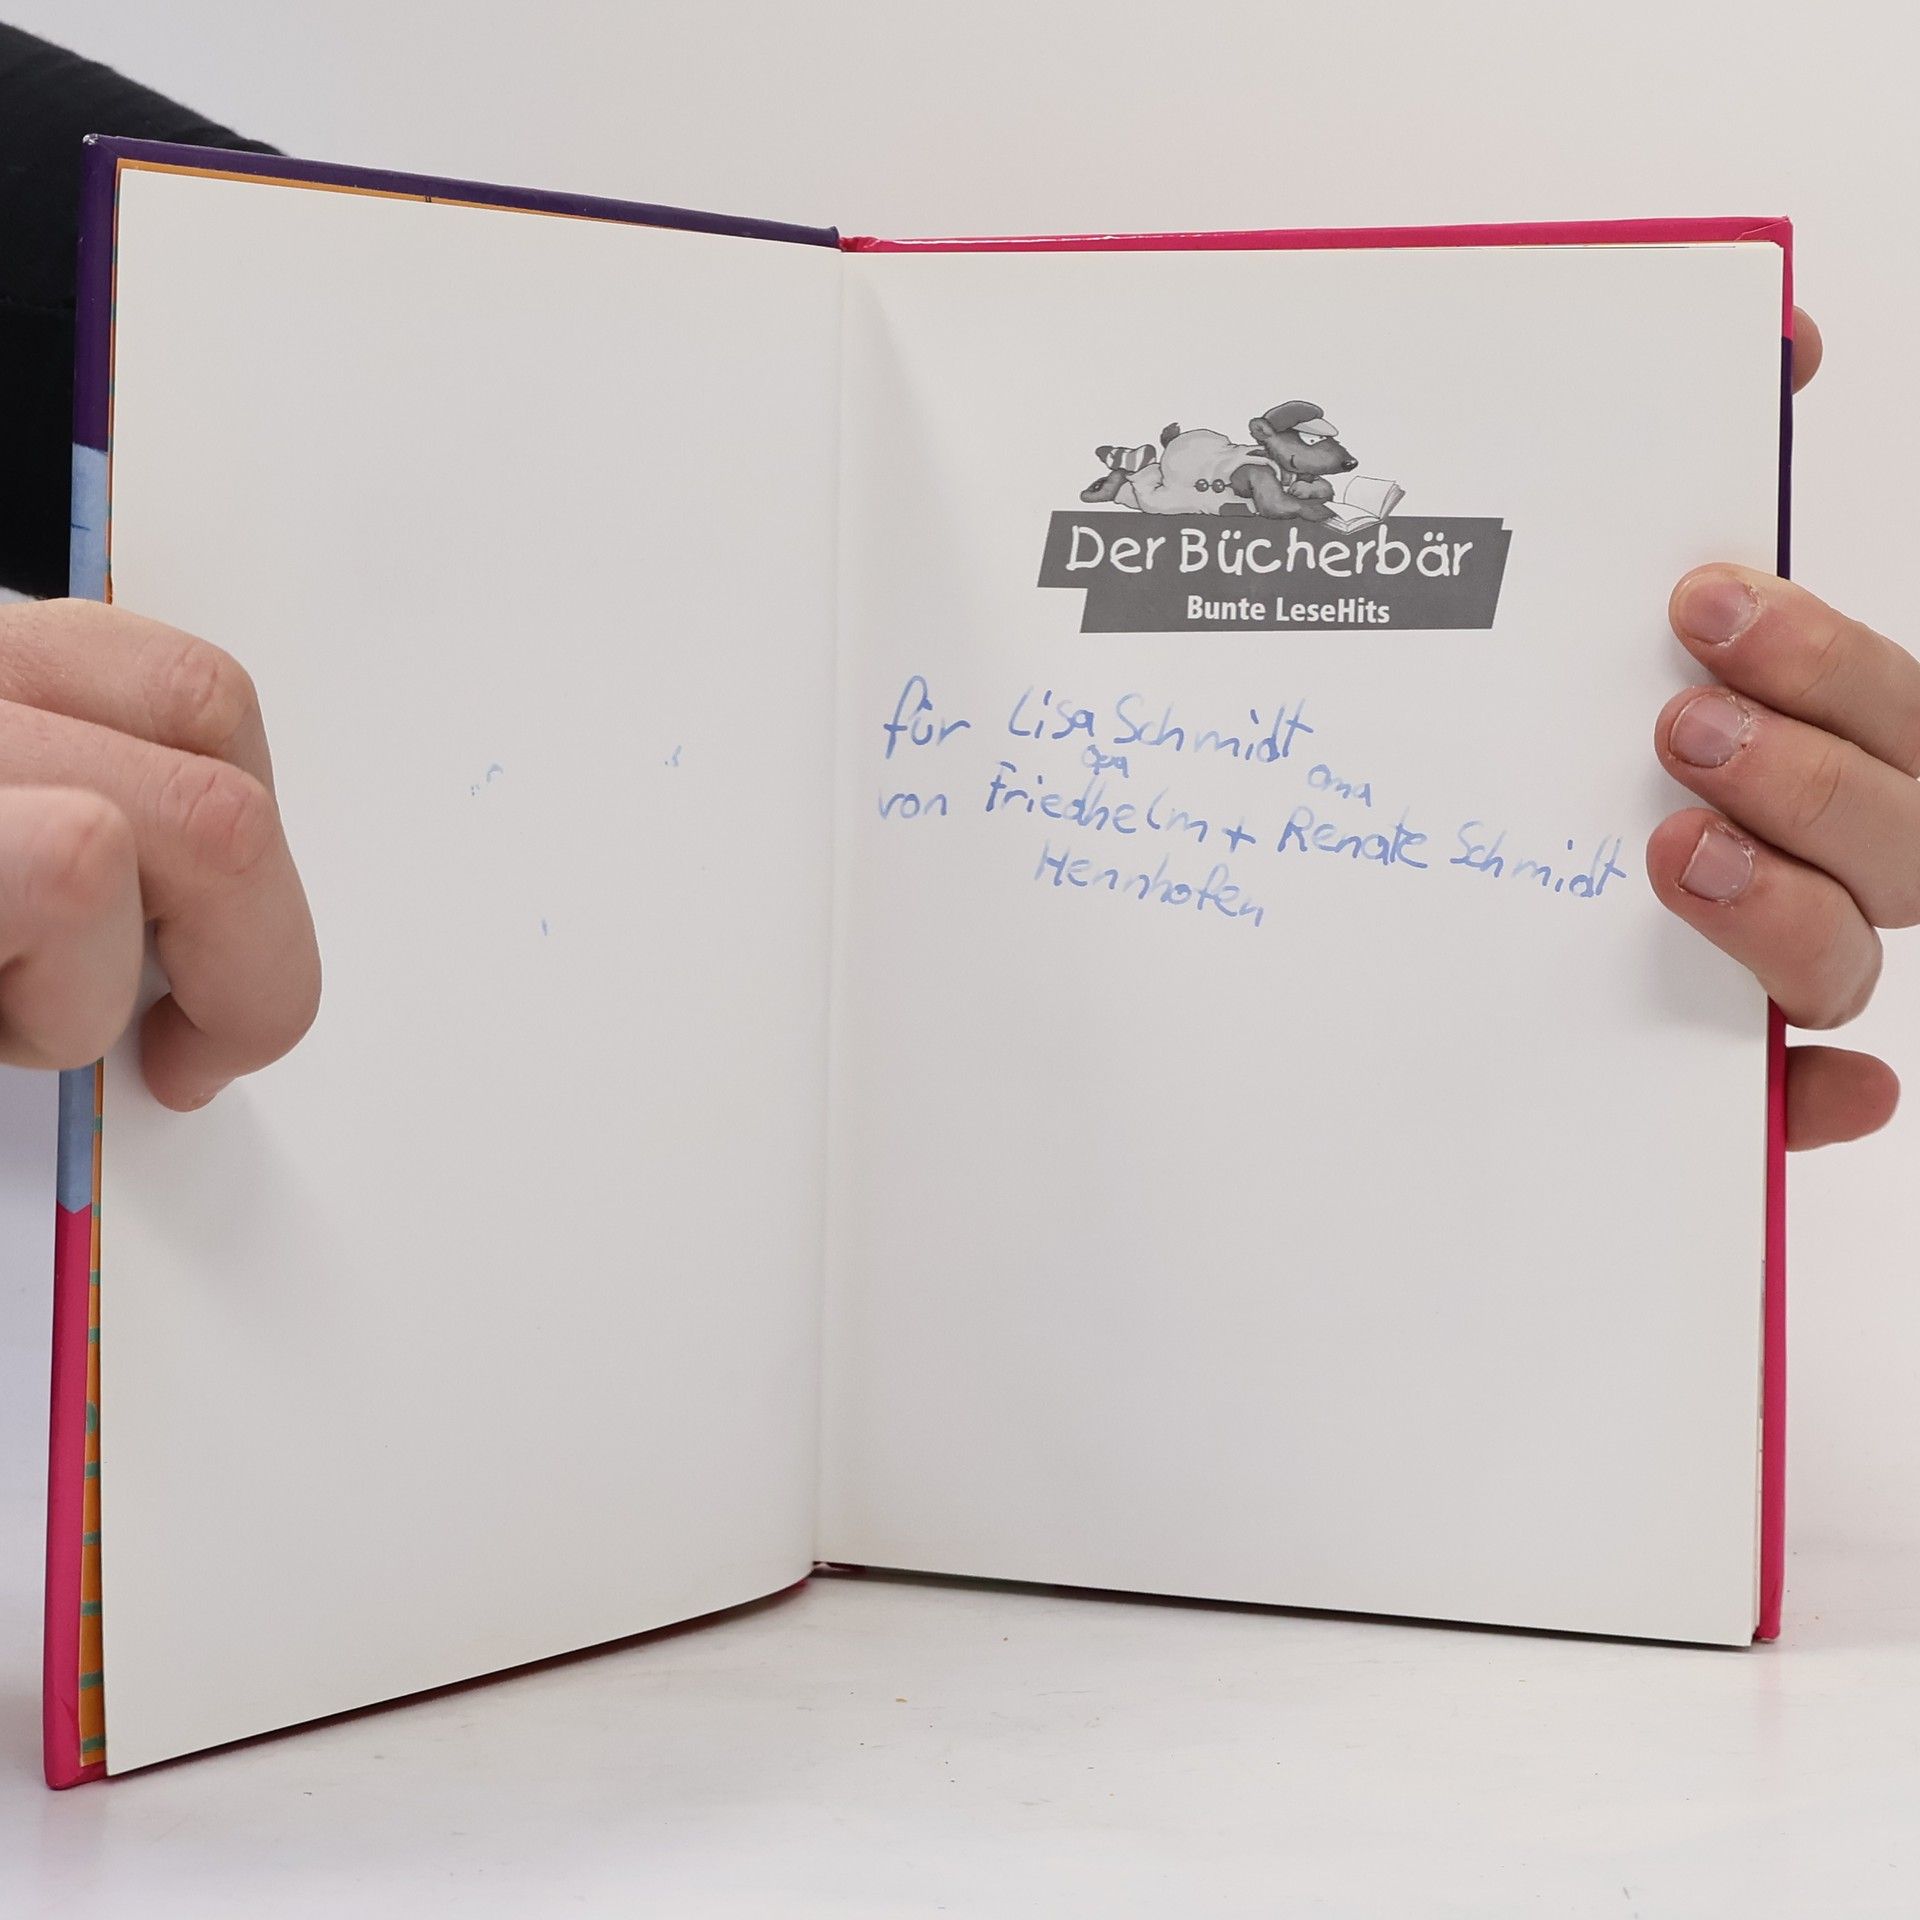 Der Bücherbär
Bunte LeseHits
für Lisa Schmidt
opa oma
von Friedhelm + Renate Schmidt
Hennhofen